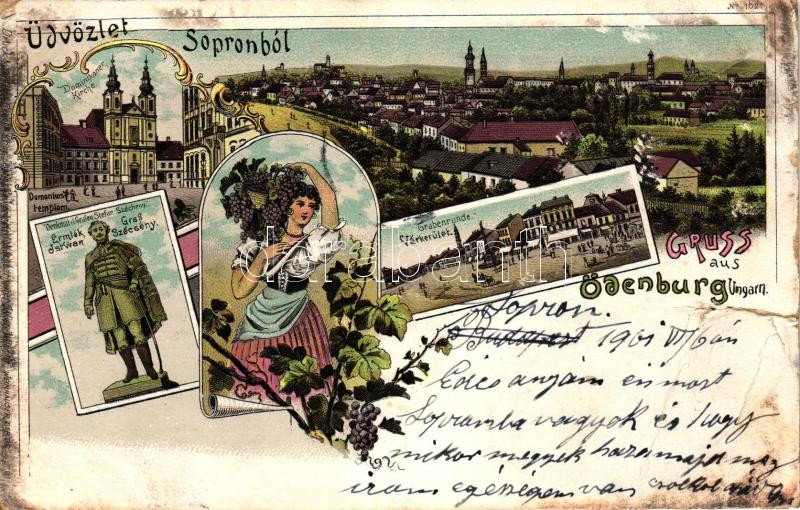 No 1021
Üdvözlet
Sopronból
Dominikaner
Kirche.
Domonkos
templom.
Denkmal d. Grafen Stefan Széchenyi.
Emlék Graf
Szécsény.
Grabenrunde.
Várkerület.
Gruss
aus
Ödenburg Ungarn.
darabanth
Sopron.
Budapest 1901 VII/6 án
Édes anyám én most
Sopramba vagyok és hogy
mikor megyek haza majd meg
irom egésségem van csolkol